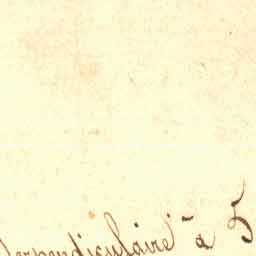 perpendiculaire à 5